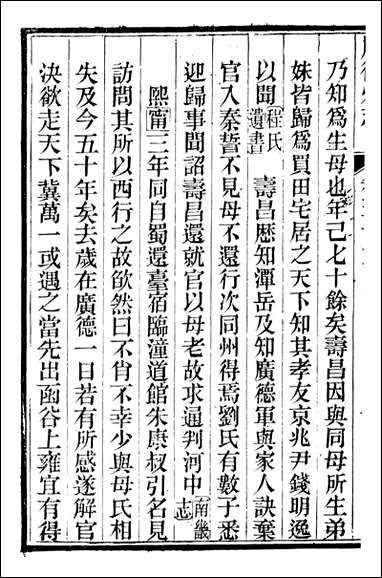 乃知爲生母也年已七十餘矣壽昌因與同母所生弟
妹皆歸爲買田宅居之天下知其孝友京兆尹錢明逸
以聞程氏遺書　壽昌歷知潭岳及知廣德軍與家人訣棄
官入秦誓不見母不還行次同州得焉劉氏有數子悉
迎歸事聞詔壽昌還就官以母老故求通判河中南畿志
熙甯三年同自蜀還臺宿臨潼道館朱康叔引名見
訪問其所以西行之故欲然曰不肖不幸少與母氏相
失及今五十年矣去歲在廣德一日若有所感遂解官
決欲走天下冀萬一或遇之當先出函谷上雍宜有得